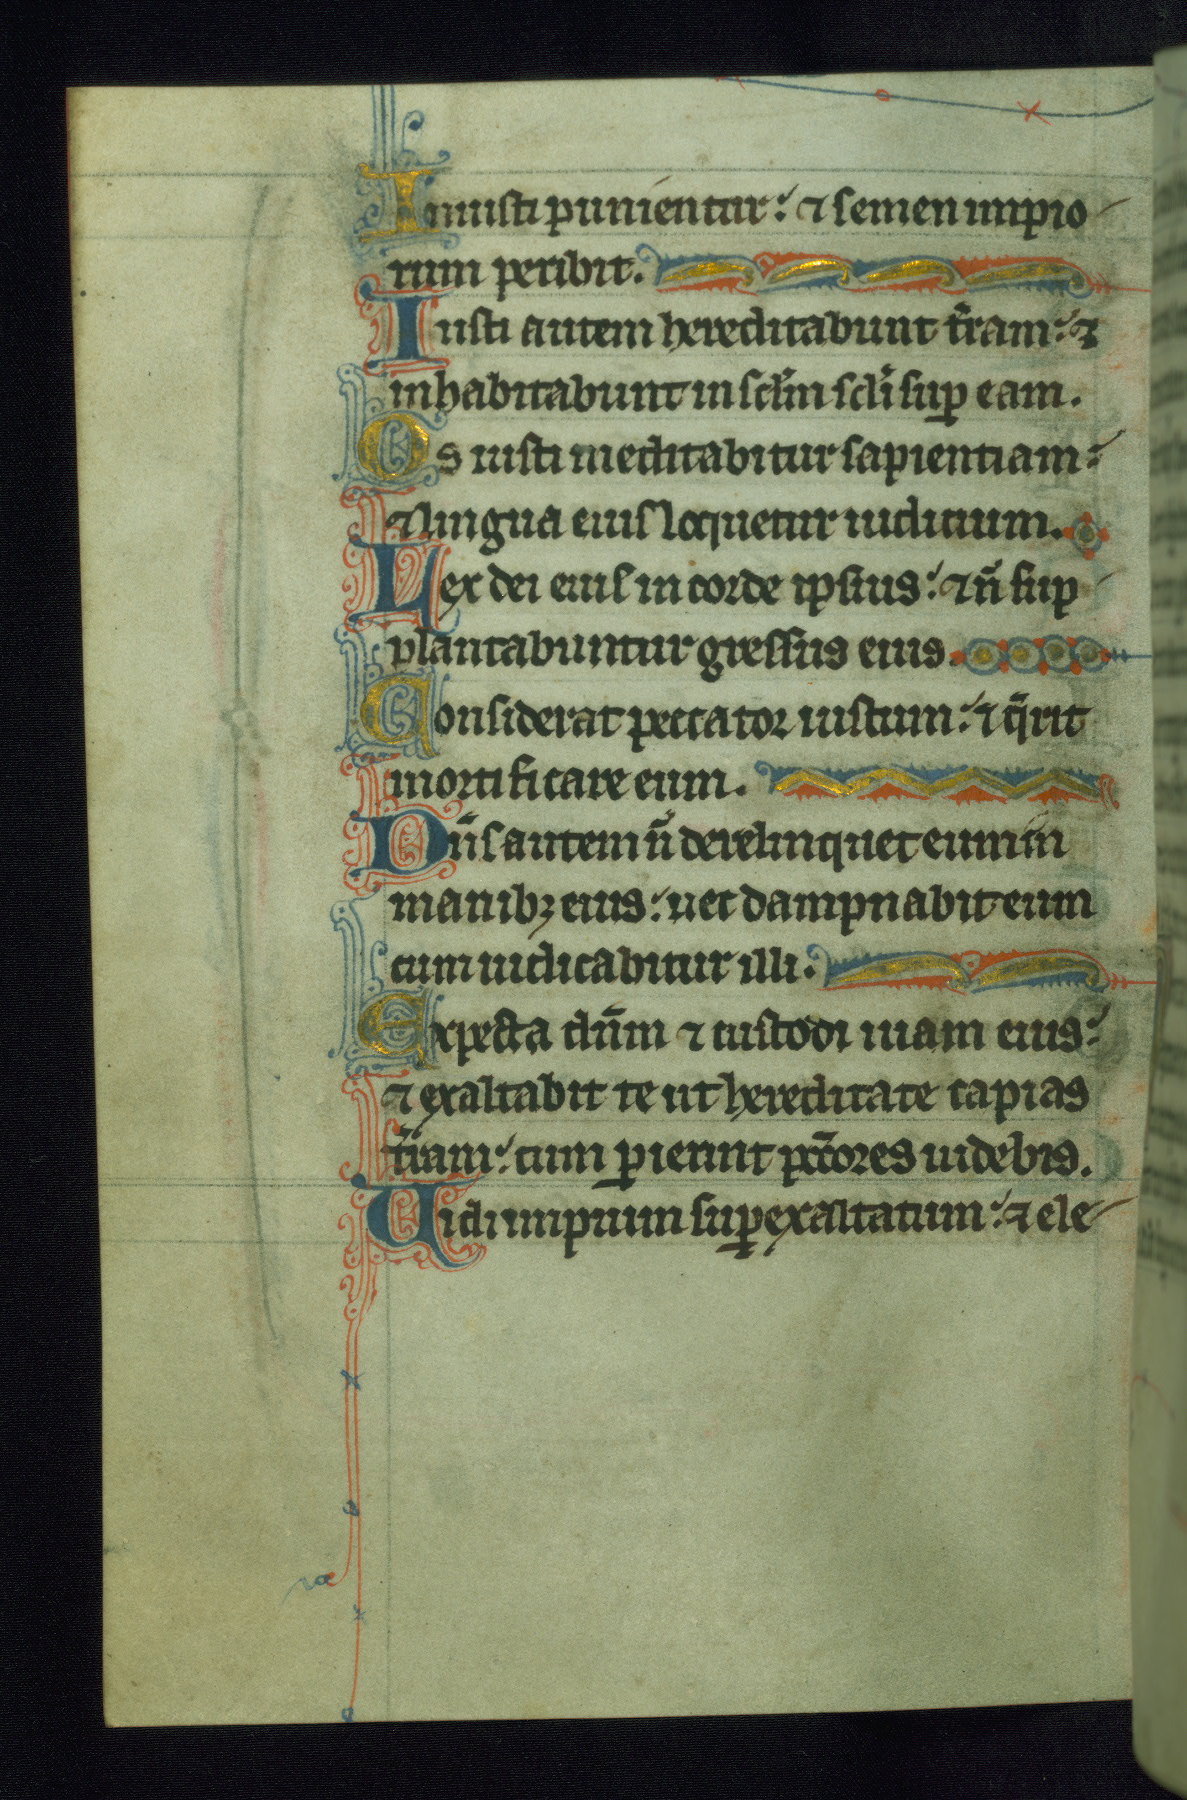 Iniusti punientur: ⁊ semen impio
rum peribit.
Iusti autem hereditabunt t̃ram: ⁊
inhabitabunt in sc̃lm sc̃li sup̱ eam.
Os iusti meditabitur sapientiam:
⁊ lingua eius loquetur iudicium.
Lex dei eius in corde ipsius: ⁊ ñ sup
plantabuntur gressus eius.
Considerat peccator iustum: ⁊ q̃rit
mortificare eum.
Dñs autem ñ derelinquet eum in
manibꝫ eius: nec dampnabit eum
cum iudicabitur illi.
Expecta dñm ⁊ custodi uiam eius:
⁊ exaltabit te ut hereditate capias
t̃ram: cum ꝑierint pc̃tores uidebis.
Uidi impium suꝑexaltatum: ⁊ ele